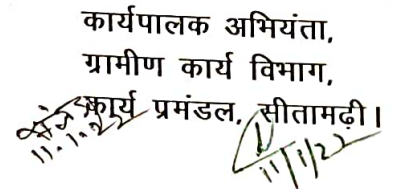 कार्यपालक अभियंता,
ग्रामीण कार्य विभाग,
कार्य प्रमंडल, सीतामढ़ी।
11.1.22 11/1/22